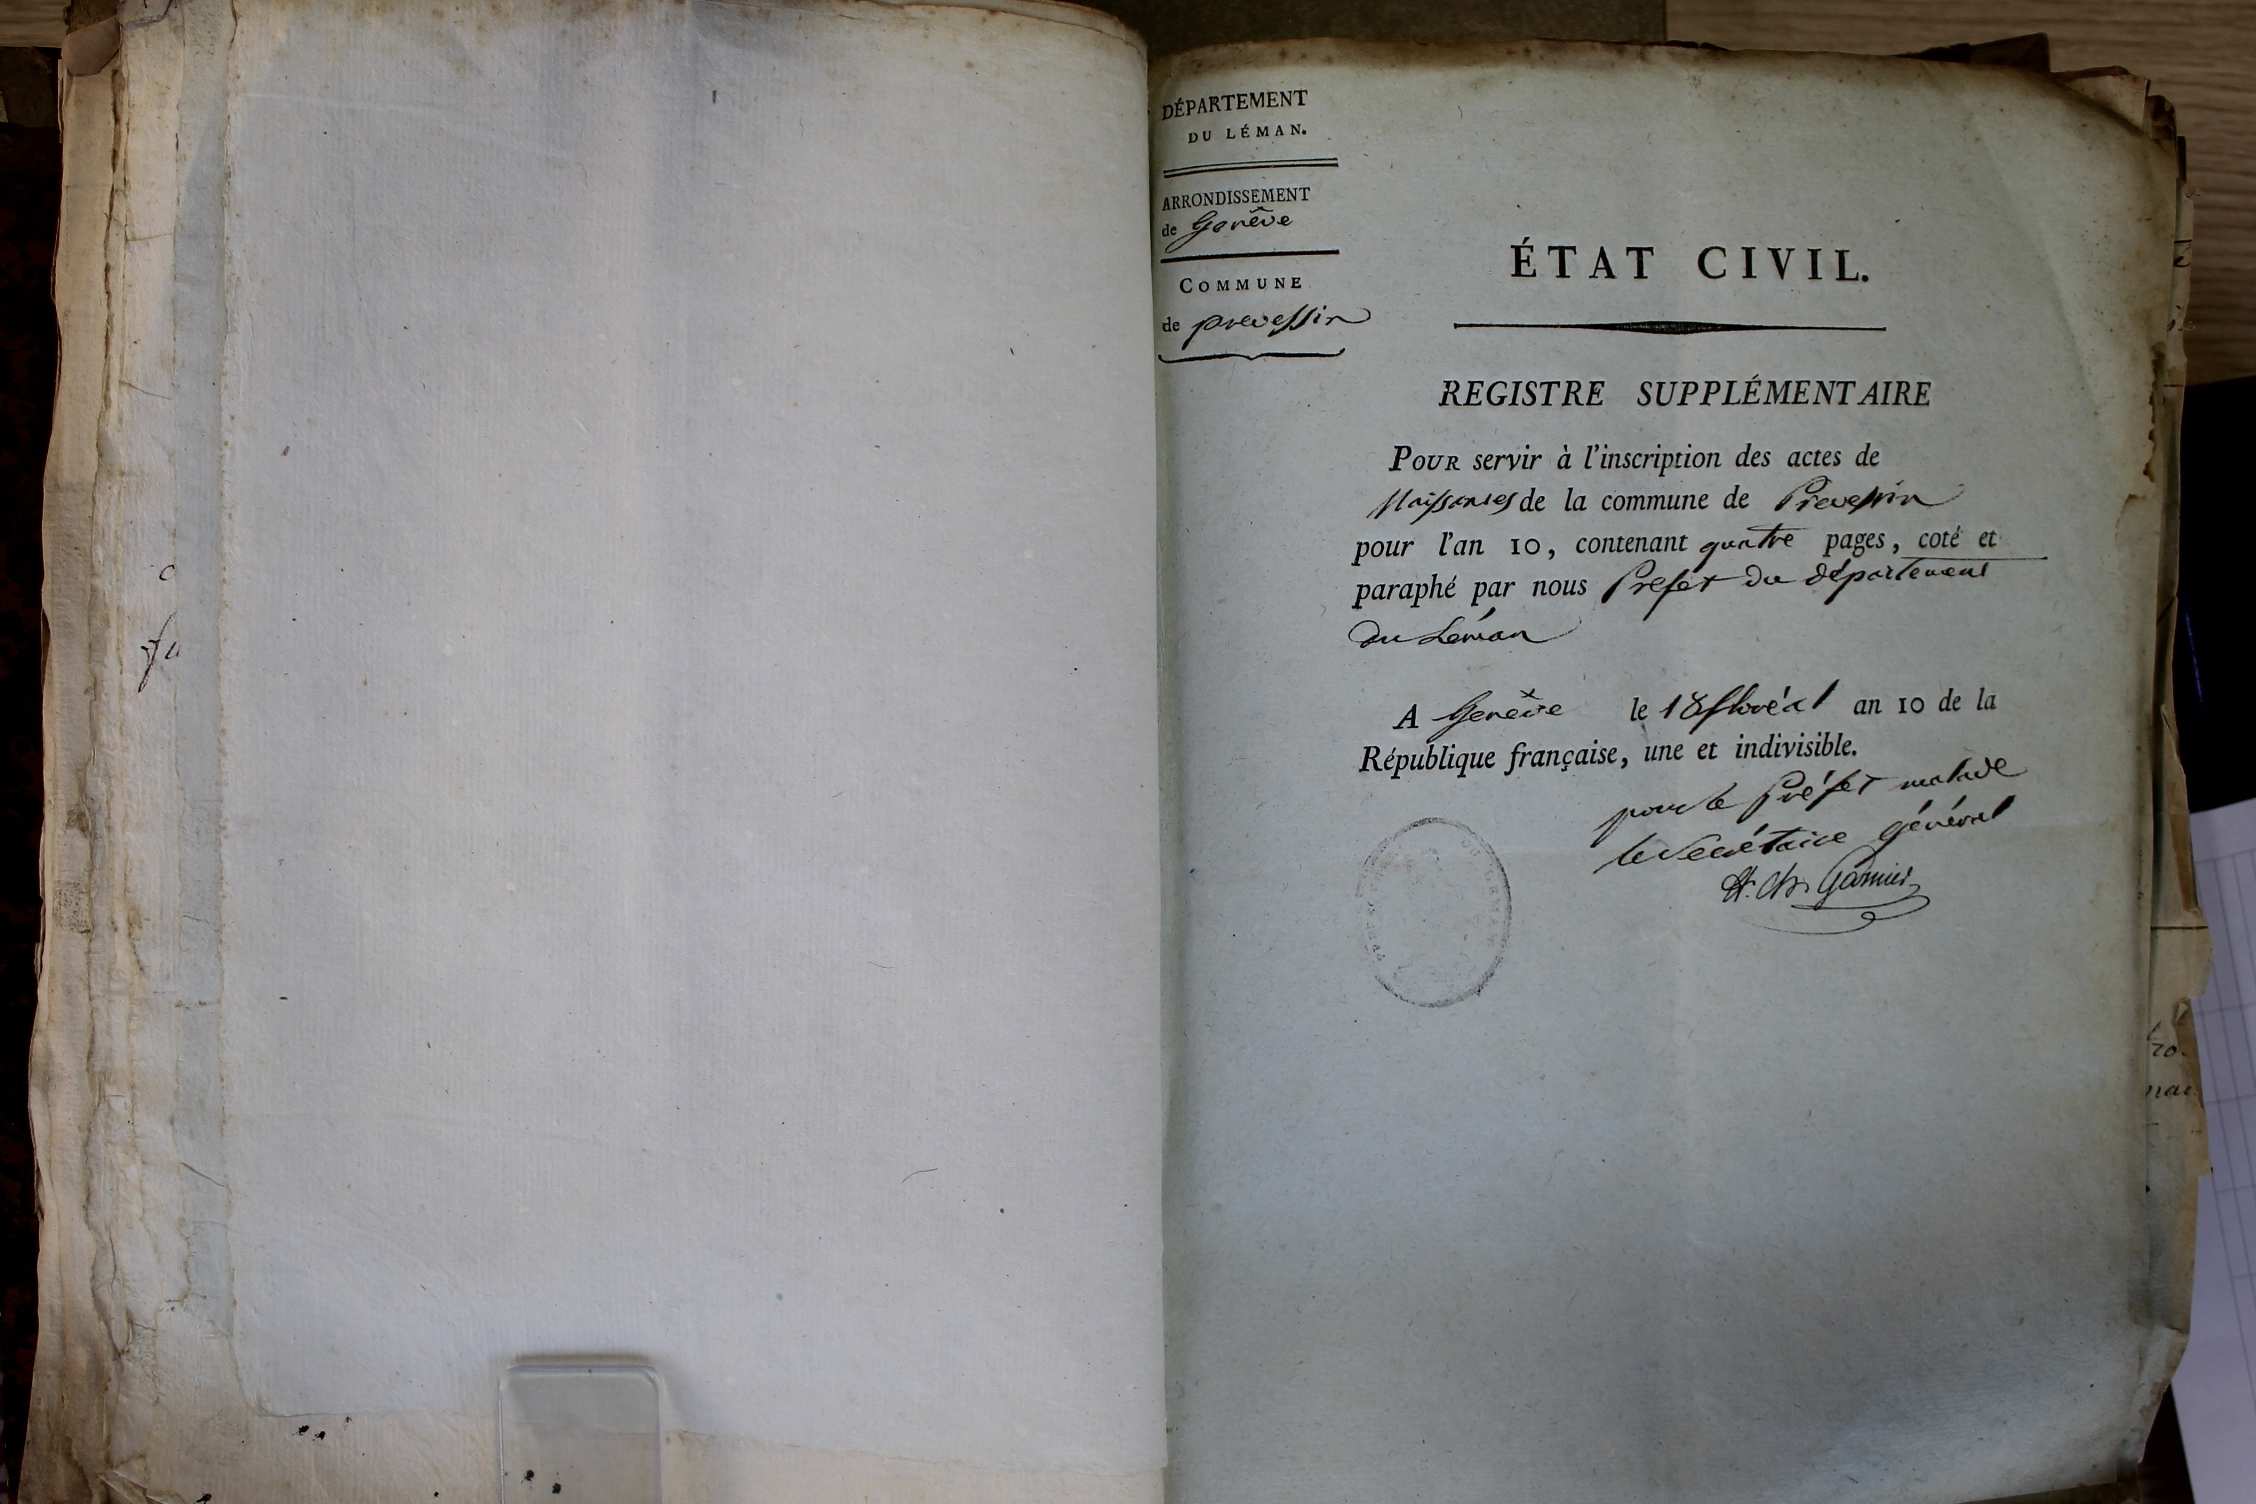 DÉPARTEMENT
DU LÉMAN.
ARRONDISSEMENT
de Genêve
COMMUNE
de prevessin
ÉTAT CIVIL.
REGISTRE SUPPLÉMENTAIRE
POUR servir à l'inscription des actes de
Naissances de la commune de Prevessin
pour l'an 10, contenant quatre pages, coté et
paraphé par nous Préfet du département
du Léman
A Genêve le 18 floréal an 10 de la
République française, une et indivisible.
pour le Préfet malade
le Secrétaire général